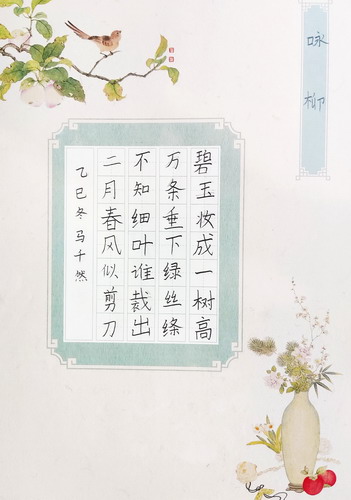 咏柳
碧玉妆成一树高
万条垂下绿丝绦
不知细叶谁裁出
二月春风似剪刀
乙巳冬马千然